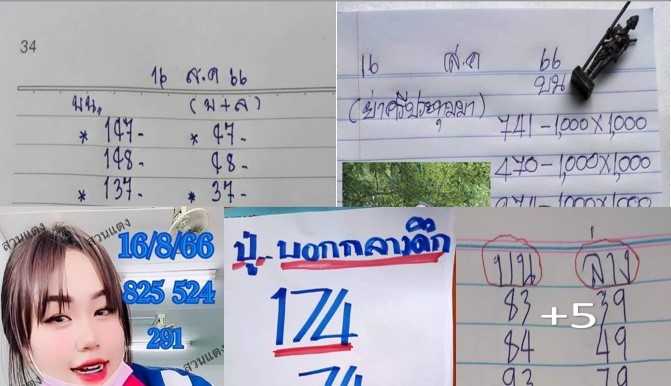 34
16 ส.ค 66
บน. (บ+ล)
* 147- * 47-
148- 48-
* 137- * 37-
16 ส.ค 66
บน
(ย่าศรีปะทุมมา)
741-1,000X1,000
470-1,000X1,000
สวนแตง
สวนแตง
16/8/66
825 524
291
สวนแตง
สวนแตง
ปู่.. บอกกลางดึก
174
74
บน ล่าง
83 39
+5
84 49
93 79